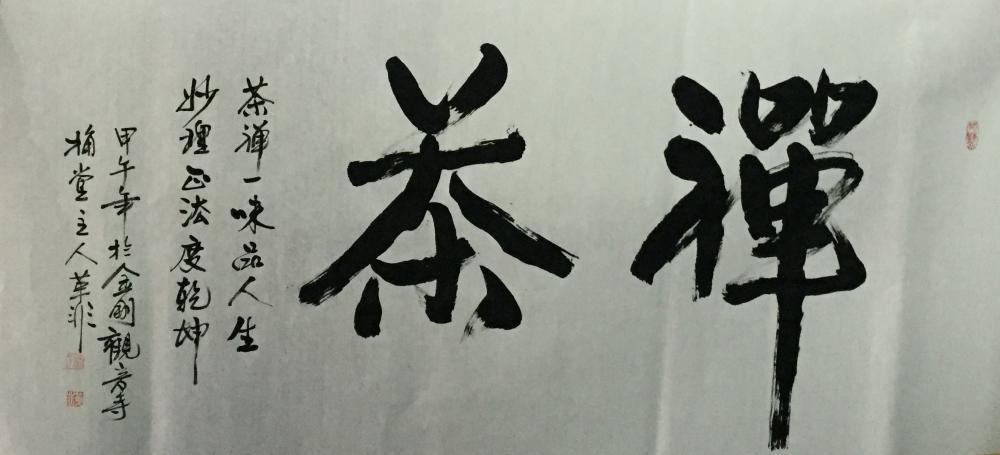 禪茶
茶禅一味品人生
妙理正法度乾坤
甲午年於金剛觀音寺
堂主人革非